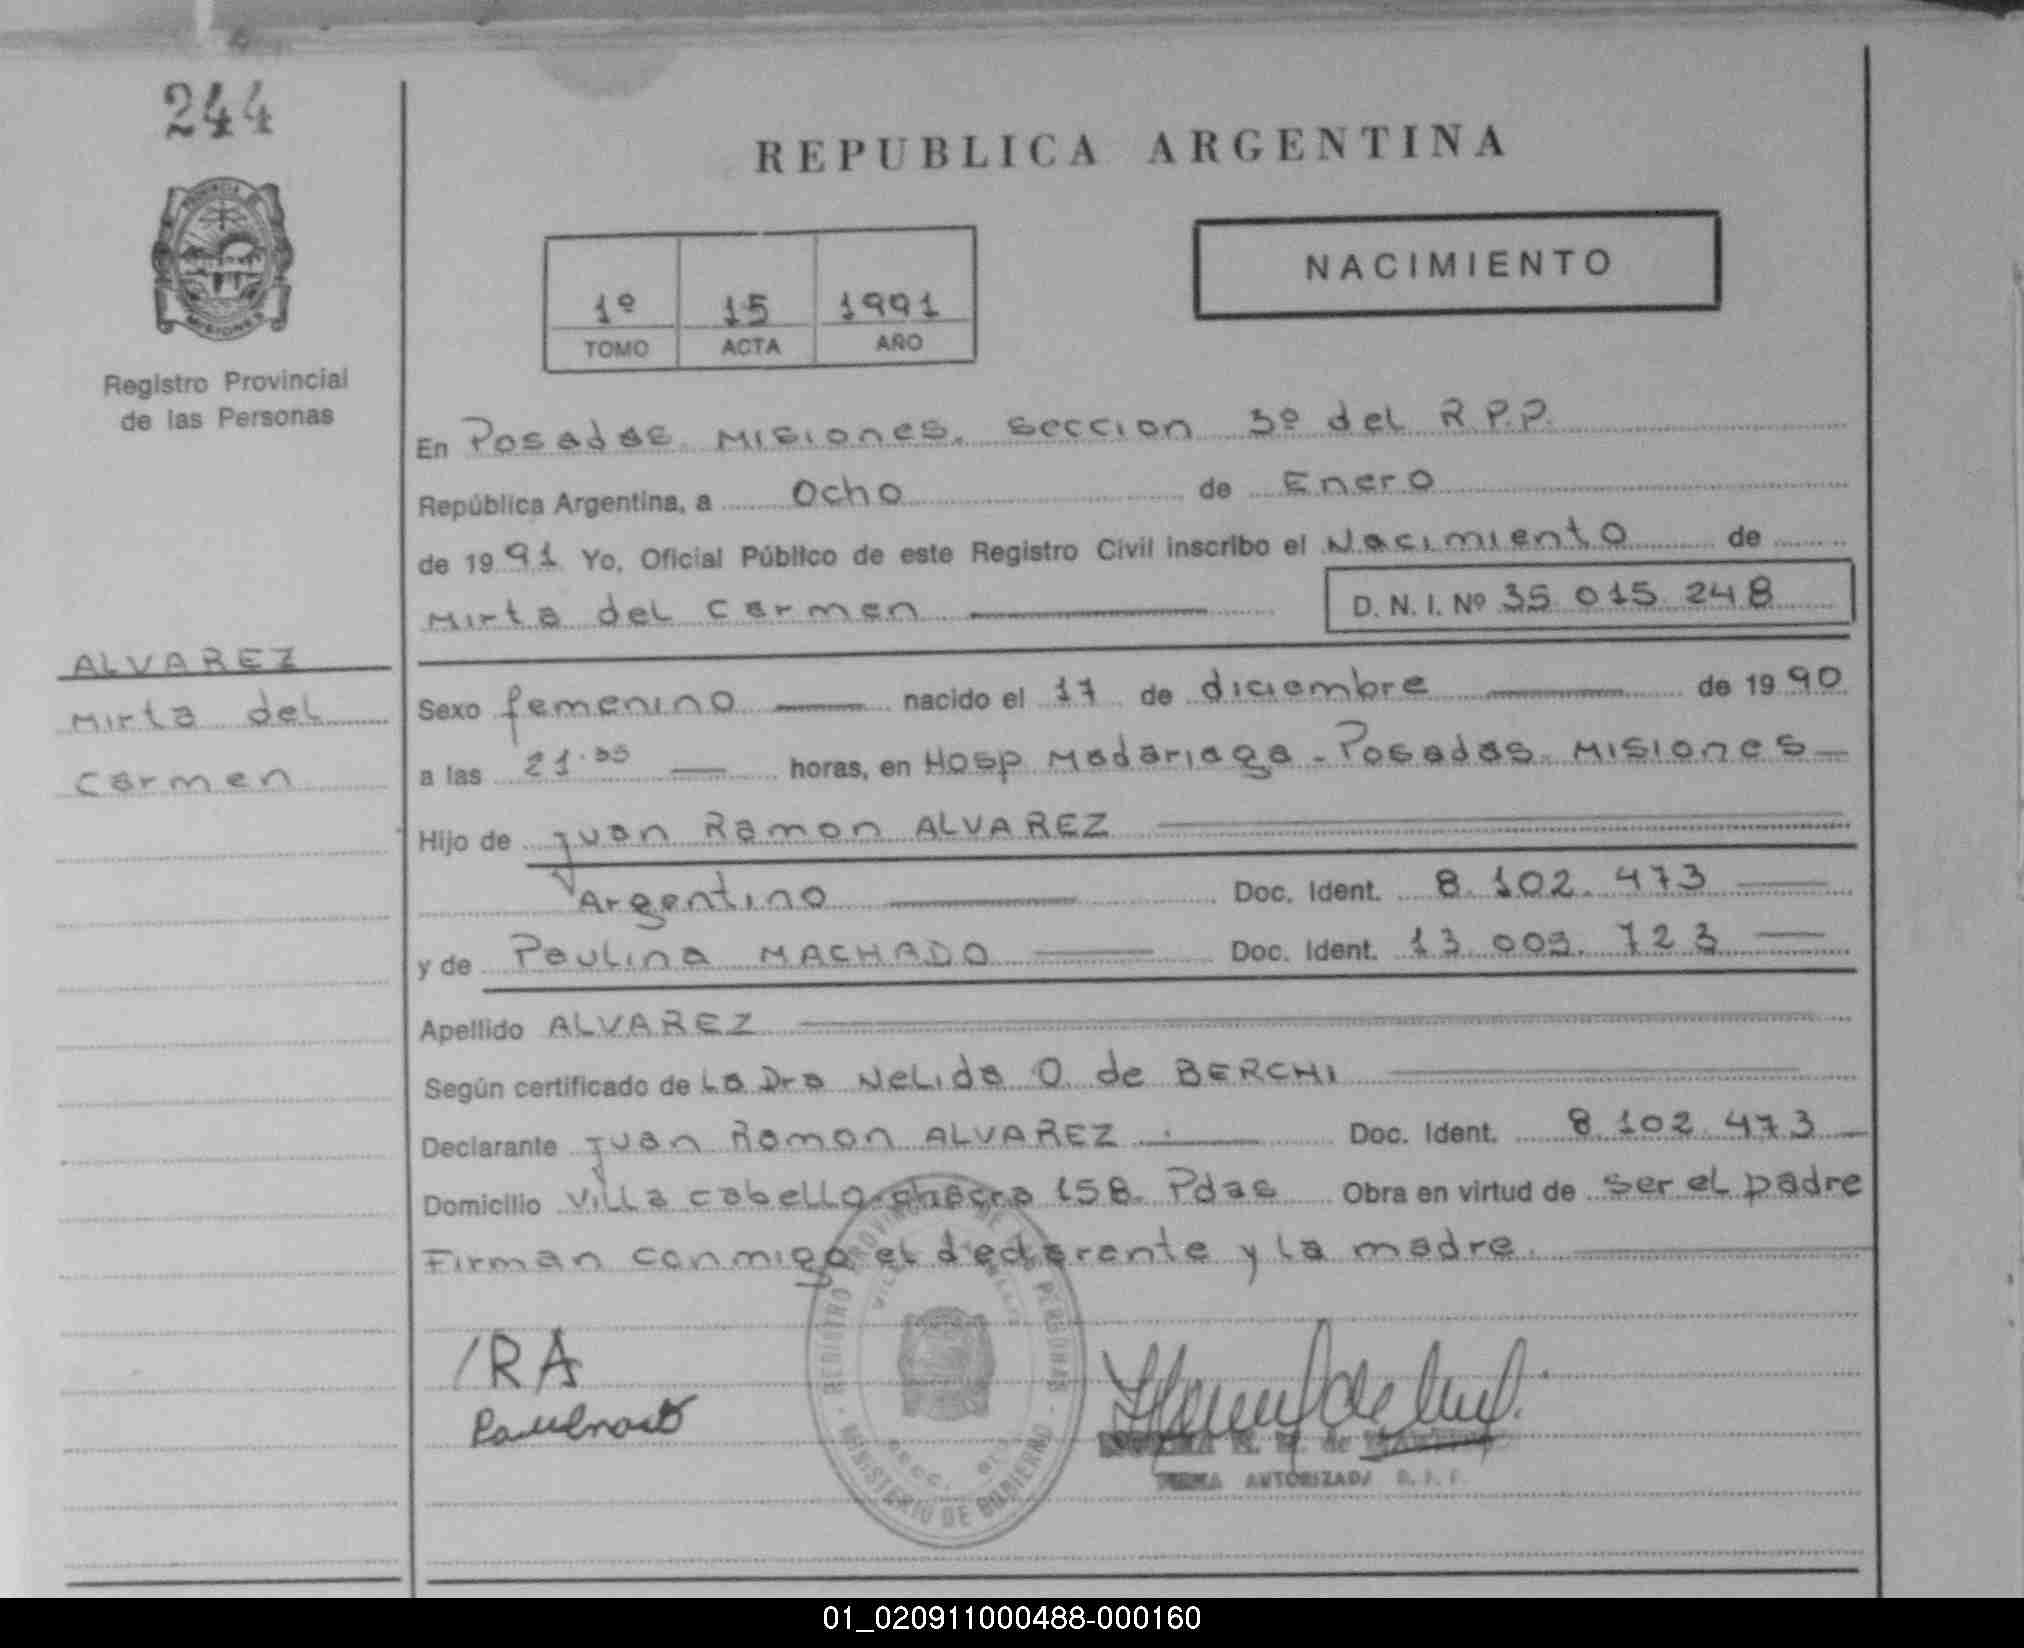 244
REPUBLICA ARGENTINA
NACIMIENTO
1º 15 1991
TOMO ACTA AÑO
PROVINCIA DE
MISIONES
Registro Provincial
de las Personas
En Posadas. Misiones. seccion 3º del R.P.P.
República Argentina, a Ocho de Enero
de 19 91 Yo, Oficial Público de este Registro Civil inscribo el Nacimiento de
Mirta del Carmen D. N. I. Nº 35 015 248
ALVAREZ
Mirta del
Carmen
Sexo femenino nacido el 17 de diciembre de 19 90
a las 21. horas, en Hosp Madariaga - Posadas. Misiones
Hijo de Juan Ramon ALVAREZ
Argentino Doc. Ident. 8. 102. 473
y de Paulina MACHADO Doc. Ident. 13 003. 723
Apellido ALVAREZ
Según certificado de La Dra Nelida O de BERCHI
Declarante Juan Ramon ALVAREZ Doc. Ident. 8 102 473
Domicilio Villa cabello chacra 158. Pdas Obra en virtud de ser el padre
Firman conmigo el declarante y la madre.
REGISTRO PROVINCIAL DE LAS PERSONAS
MINISTERIO DE GOBIERNO
IRA
FIRMA AUTORIZADA
01_020911000488-000160